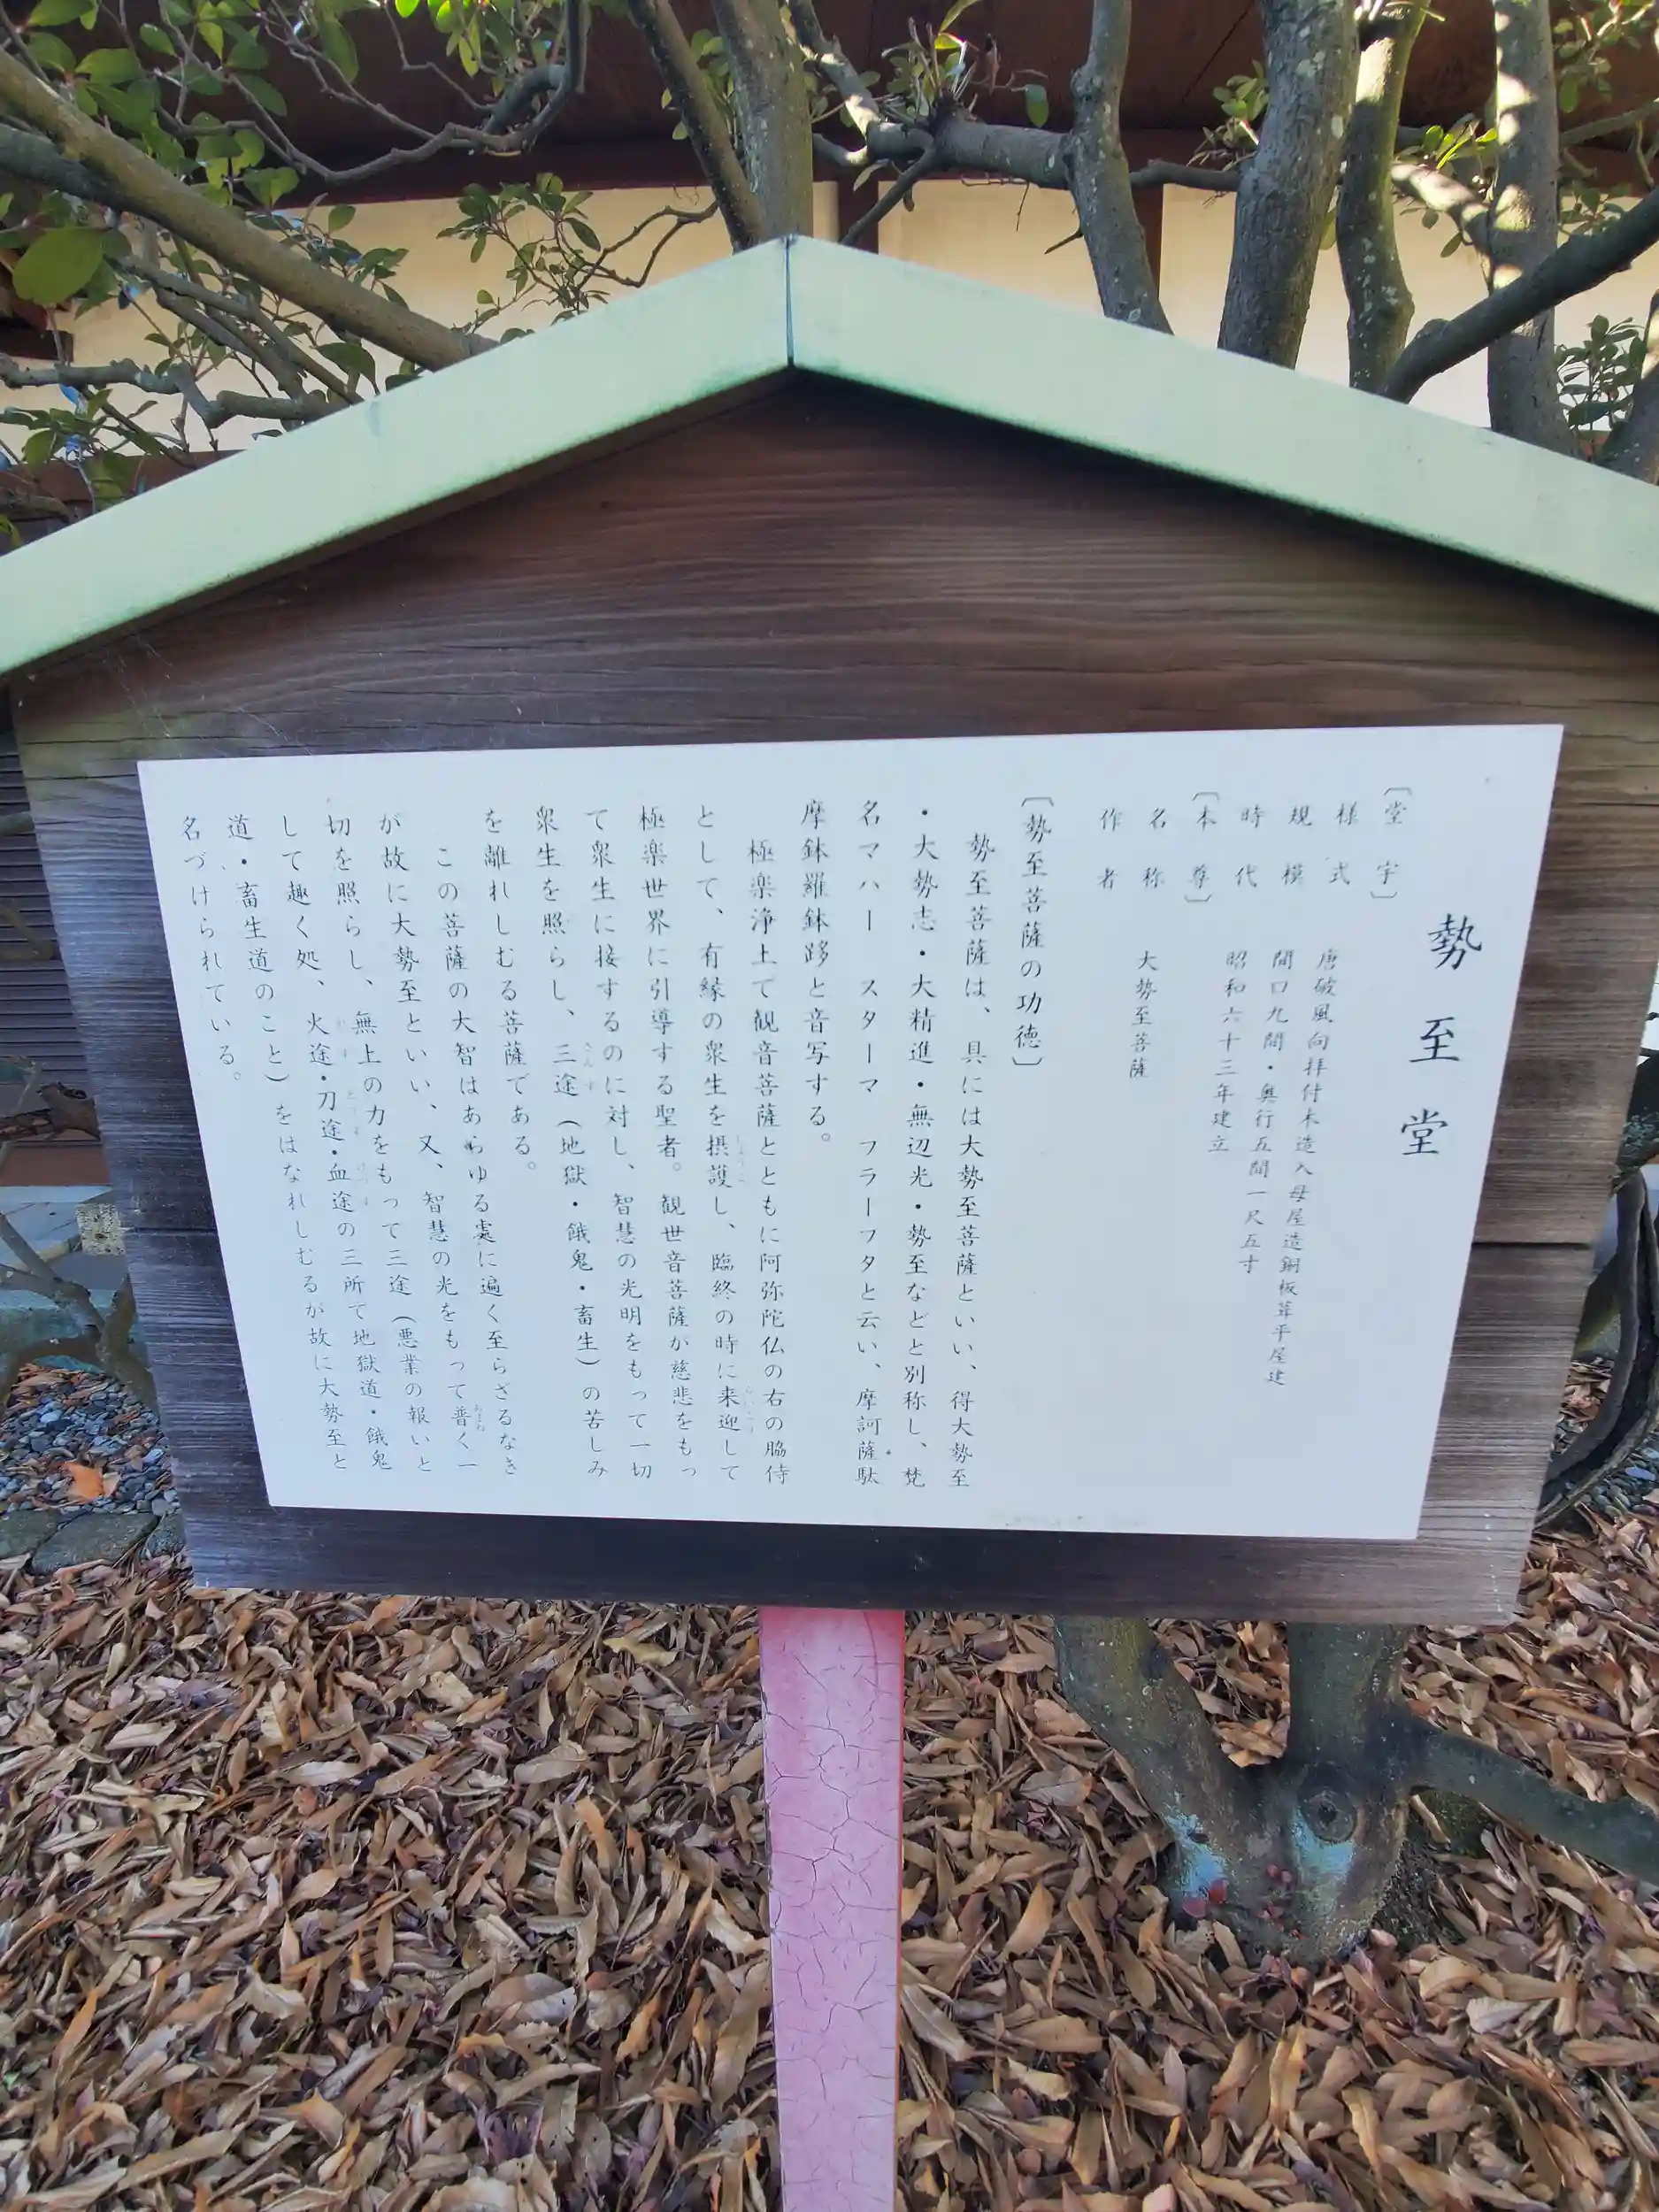 勢至堂
〔堂宇〕
様式 唐破風向拝付木造入母屋造銅板葺平屋建
規模 間口九間・奥行五間一尺五寸
時代 昭和六十三年建立
〔本尊〕
名称 大勢至菩薩
作者
〔勢至菩薩の功徳〕
勢至菩薩は、具には大勢至菩薩といい、得大勢至
・大勢志・大精進・無辺光・勢至などと別称し、梵
名マハー スターマ フラーフタと云い、摩訶薩駄
摩鉢羅鉢跢と音写する。
極楽浄土で観音菩薩とともに阿弥陀仏の右の脇侍
として、有縁の衆生を摂護し、臨終の時に来迎して
極楽世界に引導する聖者。観世音菩薩が慈悲をもっ
て衆生に接するのに対し、智慧の光明をもって一切
衆生を照らし、三途（地獄・餓鬼・畜生）の苦しみ
を離れしむる菩薩である。
この菩薩の大智はあらゆる処に遍く至らざるなき
が故に大勢至といい、又、智慧の光をもって普く一
切を照らし、無上の力をもって三途（悪業の報いと
して趣く処、火途・刀途・血途の三所で地獄道・餓鬼
道・畜生道のこと）をはなれしむるが故に大勢至と
名づけられている。